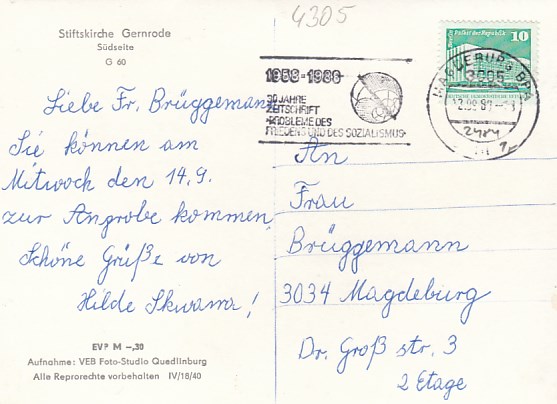 4305
Stiftskirche Gernrode
Südseite
G 60
Volker der Republik
10
1958-1988
30 JAHRE
ZEITSCHRIFT
PROBLEME DES
FRIEDENS UND DES SOZIALISMUS
MAGDEBURG BPA
3005
Liebe Fr. Brüggemann,
Sie können am
Mitwoch den 14.9.
zur Anprobe kommen.
Schöne Grüße von
Hilde
An
Frau
Brüggemann
3034 Magdeburg
Dr. Groß str. 3
2 Etage
EVP M -,30
Aufnahme: VEB Foto-Studio Quedlinburg
Alle Reprorechte vorbehalten IV/18/40